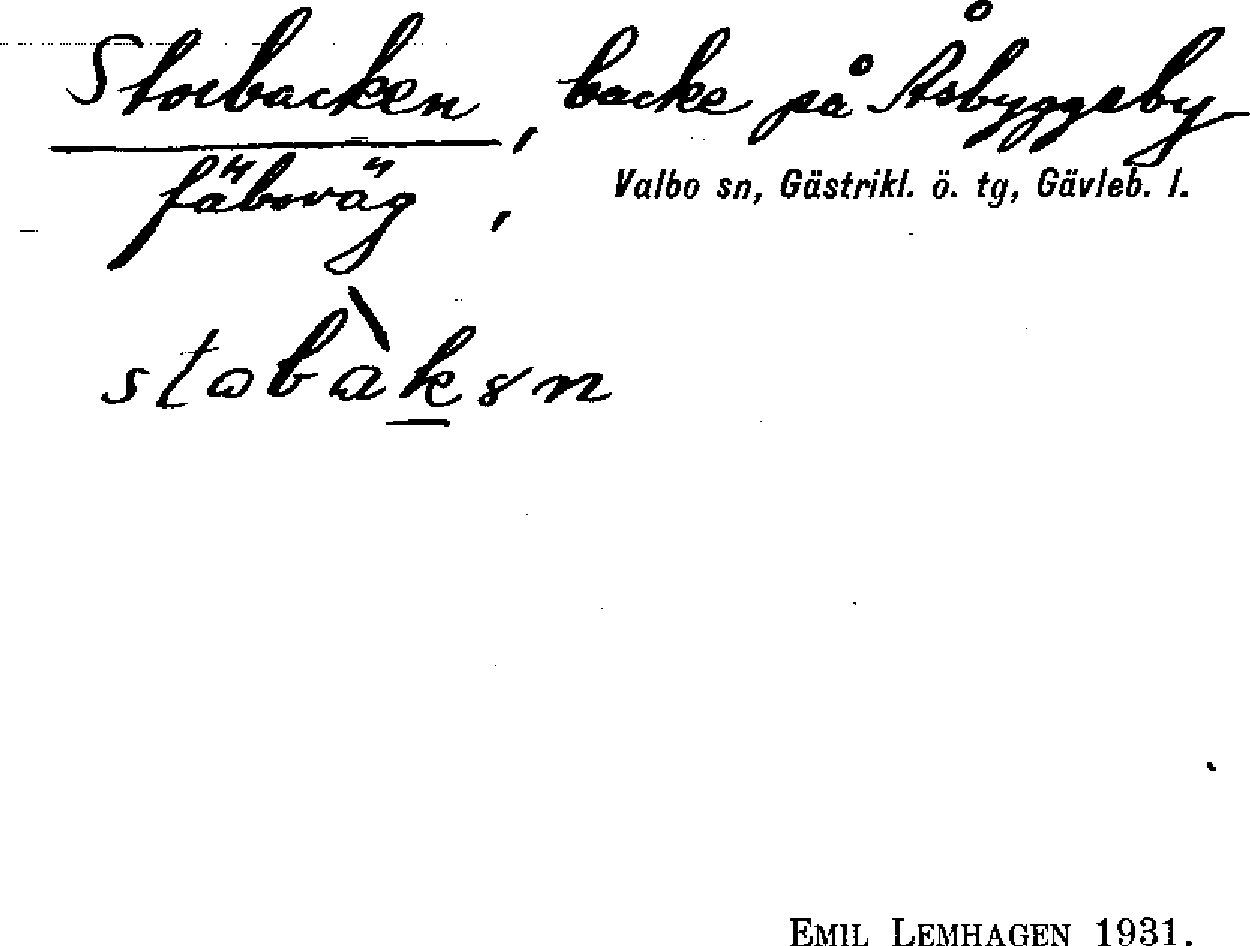 Storbacken, backe på Åsbyggeby
fäboväg,
Valbo sn, Gästrikl. ö. tg, Gävleb. l.
stobàkən
EMIL LEMHAGEN 1931.